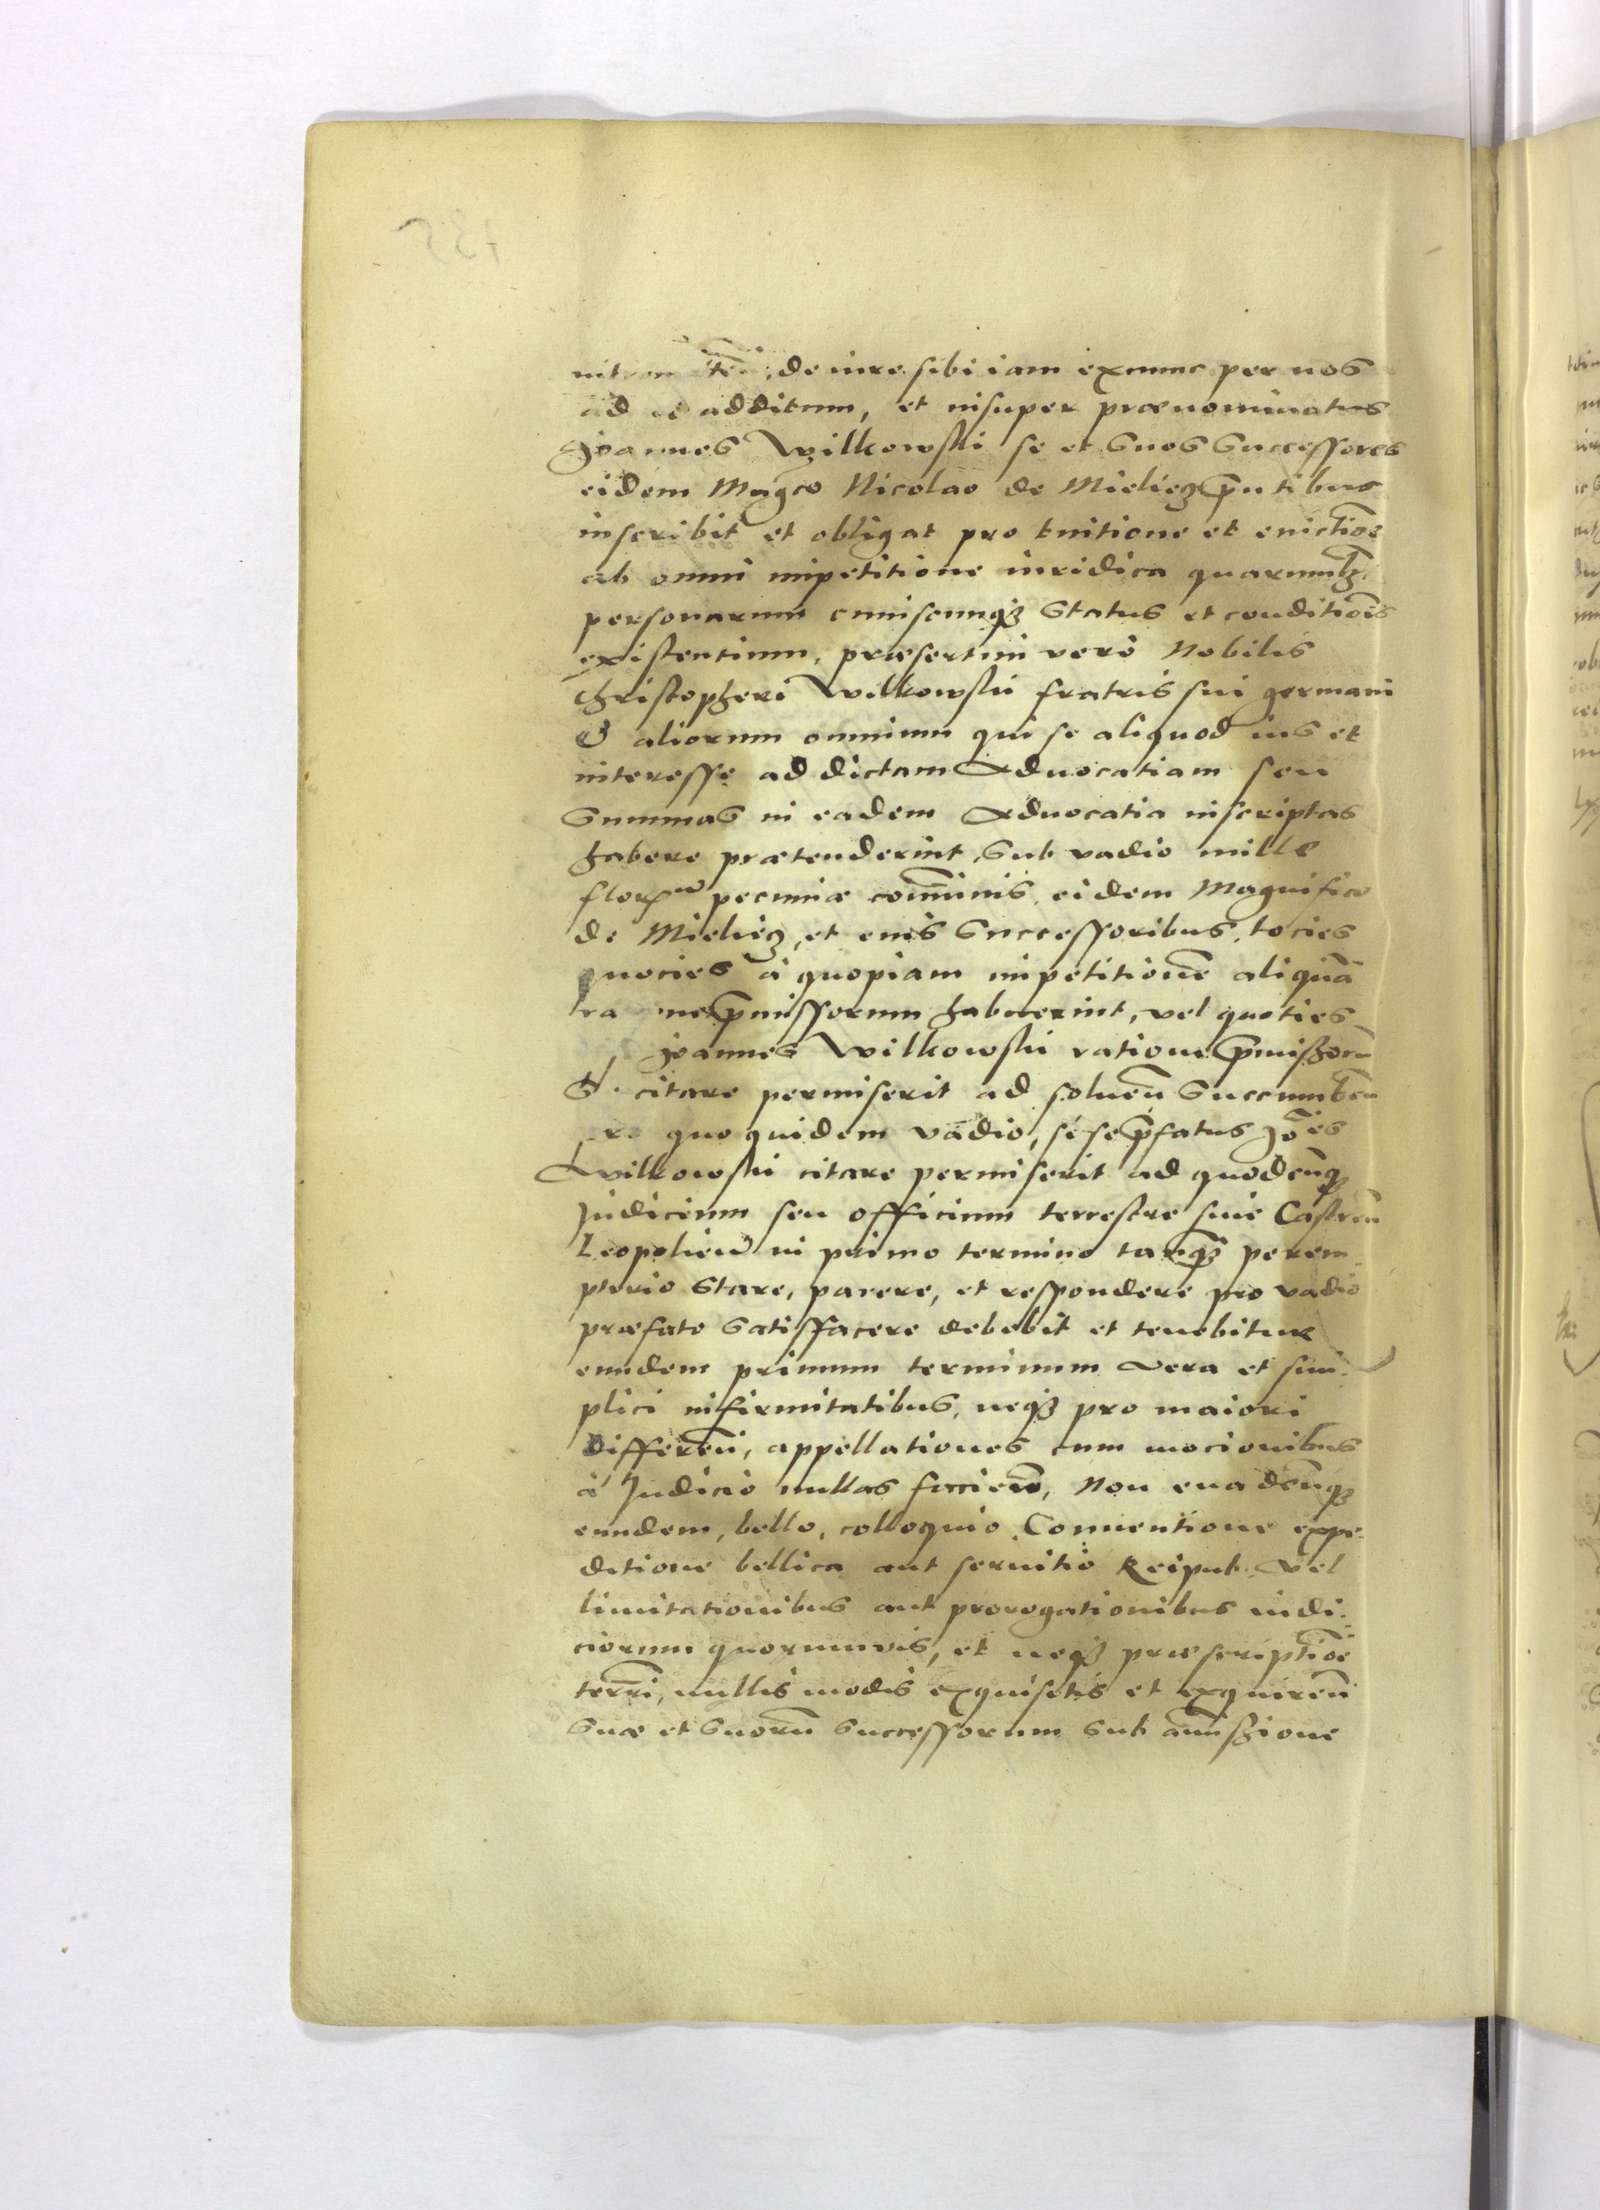 de iure sibi iam exnunc per nos
ad id additum, et insuper prænominatus
Joannes Wilkowski se et suos successores
eidem Magco Nicolao de Mieliecz pñtibus
inscribit et obligat pro tuitione et euictiõe
ab omni impetitione iuridica quarumlꝫ
personarum cuiuscunqꝫ status et conditiõis
existentium, præsertim vero Nobilis
Christopheri Wilkowski fratris sui germani
& aliorum omnium qui se aliquod ius et
interesse ad dictam Aduocatiam seu
summas in eadem Aduocatia inscriptas
habere prætenderint, sub vadio mille
florum pecuniæ com̃unis, eidem Magnifico
de Mieliecz, et eius successoribus, tocies
quocies à quopiam impetitionẽ aliquã
p̃missorum habuerint, vel quoties
Joannes Wilkowski ratione p̃missorũ
se citare permiserit ad soluen̄ succumben̄
pro quo quidem vadio, si se p̃fatus Joẽs
Wilkowski citare permiserit ad quodcũqꝫ
Judicium seu officium terrestre siue Castren̄
Leopolien̄ in primo termino tanqꝫ perem-
ptorio stare, parere, et respondere pro vadio
præfato satisfacere debebit et tenebitur
eundem primum terminum vera et sim-
plici infirmitatibus, neqꝫ pro maiori
differen̄, appellationes cum mocionibus
à Judicio nullas facien̄, Non euadenqꝫ
eundem, bello, colloquio, Conuentione expe-
ditione bellica aut seruitio Reipub. vel
limitationibus aut prorogationibus iudi-
ciorum quorumuis, et neqꝫ præscriptiõe
terr̃i, nullis modis exquisitis et exquiren̄
suæ et suorũ successorum sub amissione